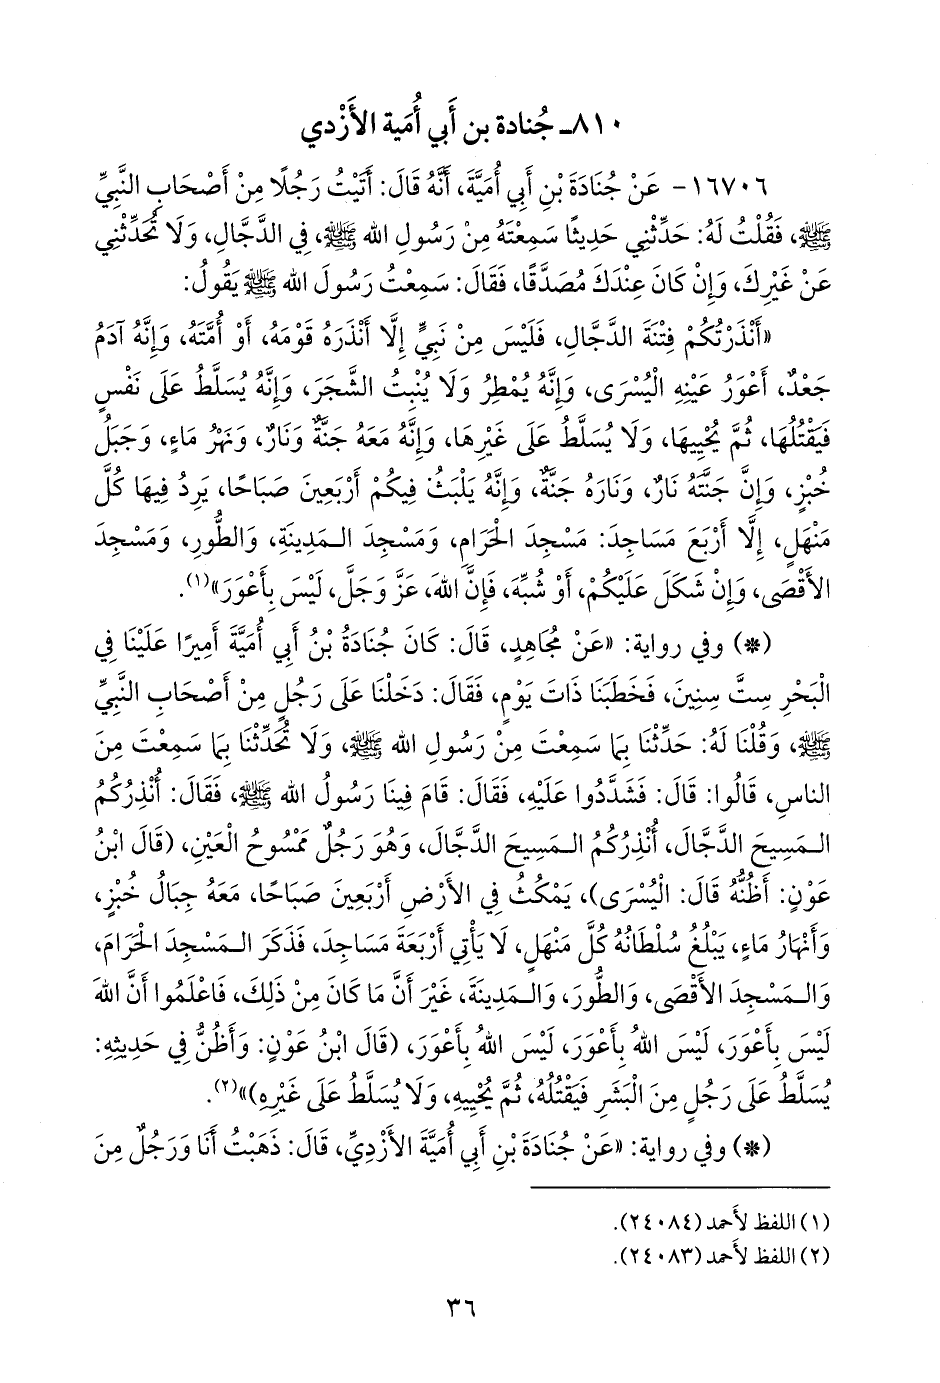 ٨١٠ـ جُنادة بن أَبي أُمَية الأَزْدي
١٦٧٠٦- عَنْ جُنَادَةَ بْنِ أَبِي أُمَيَّةَ، أَنَّهُ قَالَ: أَتَيْتُ رَجُلًا مِنْ أَصْحَابِ النَّبِيِّ
ﷺ، فَقُلْتُ لَهُ: حَدِّثْنِي حَدِيثًا سَمِعْتَهُ مِنْ رَسُولِ الله ﷺ، فِي الدَّجَّالِ، وَلَا تُحَدِّثْنِي
عَنْ غَيْرِكَ، وَإِنْ كَانَ عِنْدَكَ مُصَدَّقًا، فَقَالَ: سَمِعْتُ رَسُولَ الله ﷺ يَقُولُ:
«أَنْذَرْتُكُمْ فِتْنَةَ الدَّجَّالِ، فَلَيْسَ مِنْ نَبِيٍّ إِلَّا أَنْذَرَهُ قَوْمَهُ، أَوْ أُمَّتَهُ، وَإِنَّهُ آدَمُ
جَعْدٌ، أَعْوَرُ عَيْنِهِ الْيُسْرَى، وَإِنَّهُ يُمْطِرُ وَلَا يُنْبِتُ الشَّجَرَ، وَإِنَّهُ يُسَلَّطُ عَلَى نَفْسٍ
فَيَقْتُلُهَا، ثُمَّ يُحْيِيهَا، وَلَا يُسَلَّطُ عَلَى غَيْرِهَا، وَإِنَّهُ مَعَهُ جَنَّةٌ وَنَارٌ، وَنَهْرُ مَاءٍ، وَجَبَلُ
خُبْزٍ، وَإِنَّ جَنَّتَهُ نَارٌ، وَنَارَهُ جَنَّةٌ، وَإِنَّهُ يَلْبَثُ فِيكُمْ أَرْبَعِينَ صَبَاحًا، يَرِدُ فِيهَا كُلَّ
مَنْهَلٍ، إِلَّا أَرْبَعَ مَسَاجِدَ: مَسْجِدَ الْحَرَامِ، وَمَسْجِدَ الـمَدِينَةِ، وَالطُّورِ، وَمَسْجِدَ
الأَقْصَى، وَإِنْ شَكَلَ عَلَيْكُمْ، أَوْ شُبِّهَ، فَإِنَّ اللهَ، عَزَّ وَجَلَّ، لَيْسَ بِأَعْوَرَ»(١).
(*) وفي رواية: «عَنْ مُجَاهِدٍ، قَالَ: كَانَ جُنَادَةُ بْنُ أَبِي أُمَيَّةَ أَمِيرًا عَلَيْنَا فِي
الْبَحْرِ سِتَّ سِنِينَ، فَخَطَبَنَا ذَاتَ يَوْمٍ، فَقَالَ: دَخَلْنَا عَلَى رَجُلٍ مِنْ أَصْحَابِ النَّبِيِّ
ﷺ، وَقُلْنَا لَهُ: حَدِّثْنَا بِمَا سَمِعْتَ مِنْ رَسُولِ الله ﷺ، وَلَا تُحَدِّثْنَا بِمَا سَمِعْتَ مِنَ
الناسِ، قَالُوا: قَالَ: فَشَدَّدُوا عَلَيْهِ، فَقَالَ: قَامَ فِينَا رَسُولُ الله ﷺ، فَقَالَ: أُنْذِرُكُمُ
الـمَسِيحَ الدَّجَّالَ، أُنْذِرُكُمُ الـمَسِيحَ الدَّجَّالَ، وَهُوَ رَجُلٌ مَمْسُوحُ الْعَيْنِ، (قَالَ ابْنُ
عَوْنٍ: أَظُنُّهُ قَالَ: الْيُسْرَى)، يَمْكُثُ فِي الأَرْضِ أَرْبَعِينَ صَبَاحًا، مَعَهُ جِبَالُ خُبْزٍ،
وَأَنْهَارُ مَاءٍ، يَبْلُغُ سُلْطَانُهُ كُلَّ مَنْهَلٍ، لَا يَأْتِي أَرْبَعَةَ مَسَاجِدَ، فَذَكَرَ الـمَسْجِدَ الْحَرَامَ،
وَالـمَسْجِدَ الأَقْصَى، وَالطُّورَ، وَالـمَدِينَةَ، غَيْرَ أَنَّ مَا كَانَ مِنْ ذَلِكَ، فَاعْلَمُوا أَنَّ اللهَ
لَيْسَ بِأَعْوَرَ، لَيْسَ اللهُ بِأَعْوَرَ، لَيْسَ اللهُ بِأَعْوَرَ، (قَالَ ابْنُ عَوْنٍ: وَأَظُنُّ فِي حَدِيثِهِ:
يُسَلَّطُ عَلَى رَجُلٍ مِنَ الْبَشَرِ فَيَقْتُلُهُ، ثُمَّ يُحْيِيهِ، وَلَا يُسَلَّطُ عَلَى غَيْرِهِ)»(٢).
(*) وفي رواية: «عَنْ جُنَادَةَ بْنِ أَبِي أُمَيَّةَ الأَزْدِيِّ، قَالَ: ذَهَبْتُ أَنَا وَرَجُلٌ مِنَ
(١) اللفظ لأَحمد (٢٤٠٨٤).
(٢) اللفظ لأَحمد (٢٤٠٨٣).
٣٦